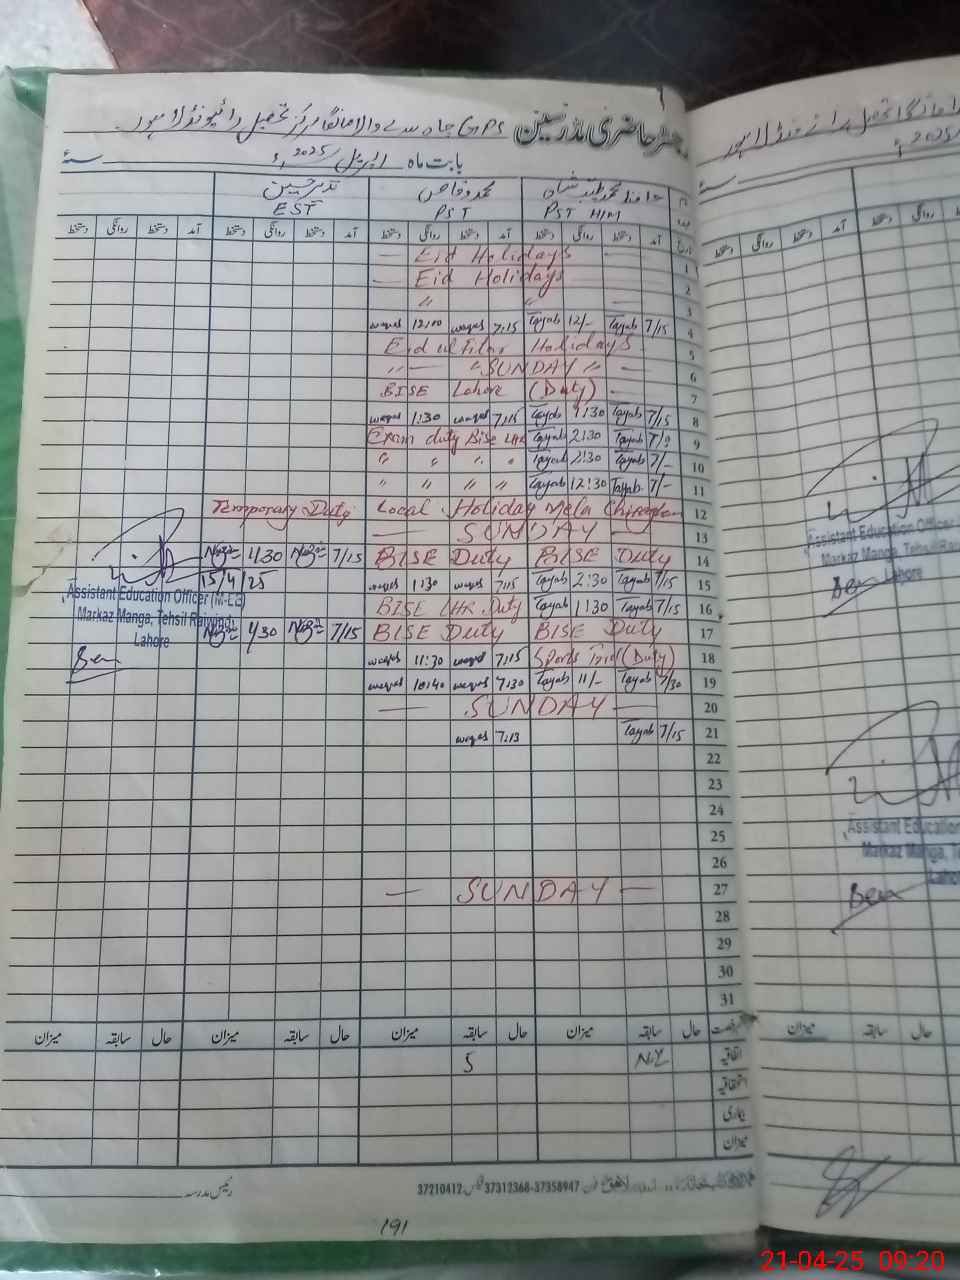 رجسٹر حاضری مدرسین GPS چاہ سے والا مانگا مرکز تحصیل رائیونڈ لاہور
بابت ماہ اپریل 2025ء سنہ
نام حافظ محمد طیب محمد وقاص
عہدہ PST H/M PST EST
تاریخ آمد دستخط روانگی دستخط آمد دستخط روانگی دستخط آمد دستخط روانگی دستخط آمد دستخط روانگی دستخط
1 — Eid Holidays —
2 — Eid Holidays
3 " " —
4 7/15 Tayab 12/- Tayab 7:15 waqas 12:00 waqas
5 Eid ul Fitar Holidays
6 " — " SUNDAY " —
7 BISE Lahore (Duty) —
8 7/15 Tayab 1:30 Tayab 7:15 waqas 1:30 waqas
9 Tayab 2:30 Tayab Exam duty Bise LHR
10 7/- Tayab 2:30 Tayab " " " "
11 7/- Tayab 12:30 Tayab " " " "
12 Temporary Duty Local Holiday Mela Chiraghan
13 — SUNDAY —
14 BISE Duty BISE Duty 7/15 1/30
15 7/15 Tayab 2:30 Tayab 7:15 waqas 1:30 waqas
15/4/25
16 7/15 Tayab 1:30 Tayab BISE LHR Duty
17 BISE Duty BISE Duty 7/15 1/30
18 Sports (Duty) 7:15 waqas 11:30 waqas
19 7/30 Tayab 11/- Tayab 7:30 waqas 10:40 waqas
20 — SUNDAY —
21 7/15 Tayab 7:13 waqas
22
23
24
25
26
27 — SUNDAY —
28
29
30
31
Assistant Education Officer (M-EE)
Markaz Manga, Tehsil Raiwind
Lahore
Seen
رخصت حال سابقہ میزان حال سابقہ میزان حال سابقہ میزان حال سابقہ میزان
اتفاقیہ 5
استحقاقیہ
بیماری
میزان
37210412 فیکس 37312368-37358947 فون
رئیس مدرسہ
191
2025ء
دستخط روانگی دستخط آمد دستخط روانگی دستخط
Assistant Education Officer
Markaz Manga, Tehsil
Lahore
Seen
Assistant Education
Markaz Manga, Te
Lahore
Seen
میزان
21-04-25 09:20